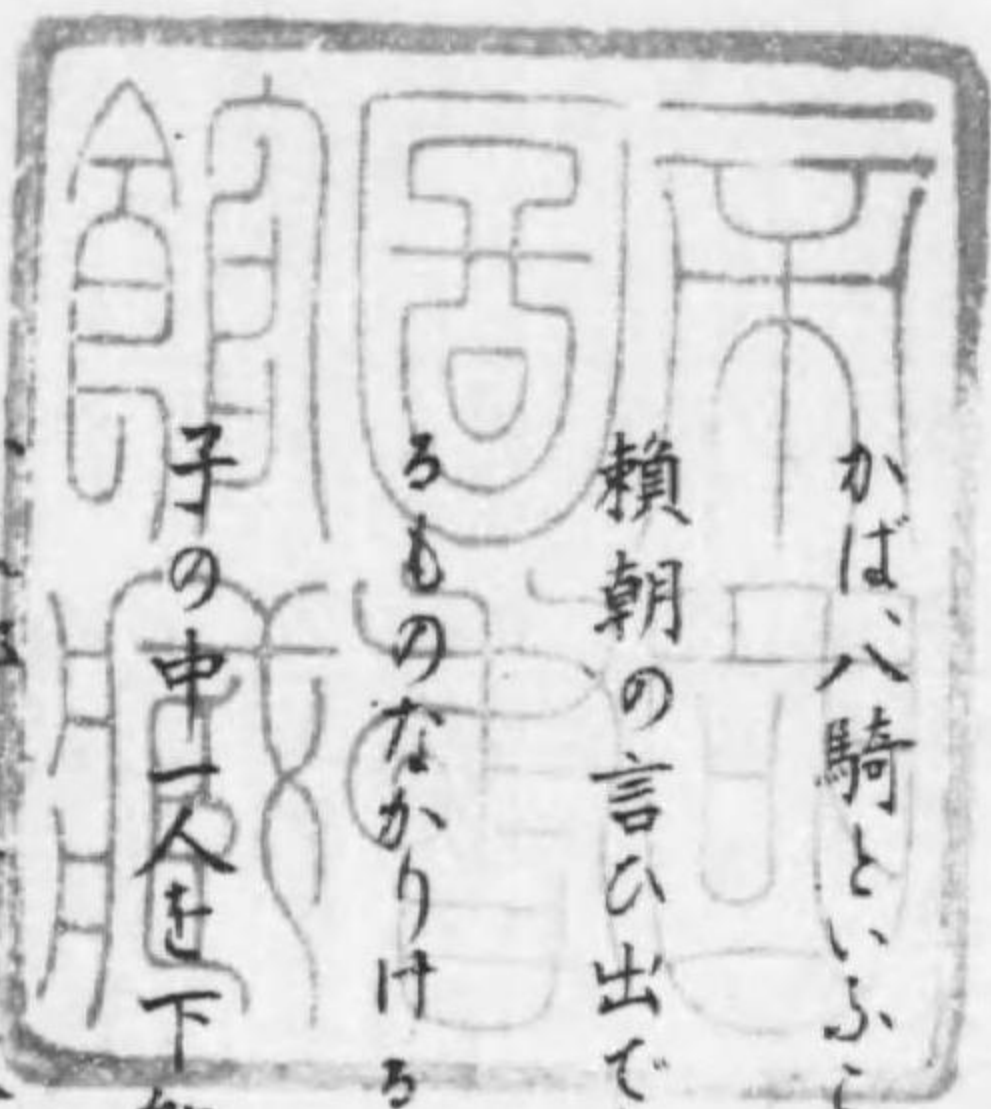 かば、八騎といふこ
頼朝の言ひ出で
るものなかりける
子の中一人を下
帝國圖書館藏